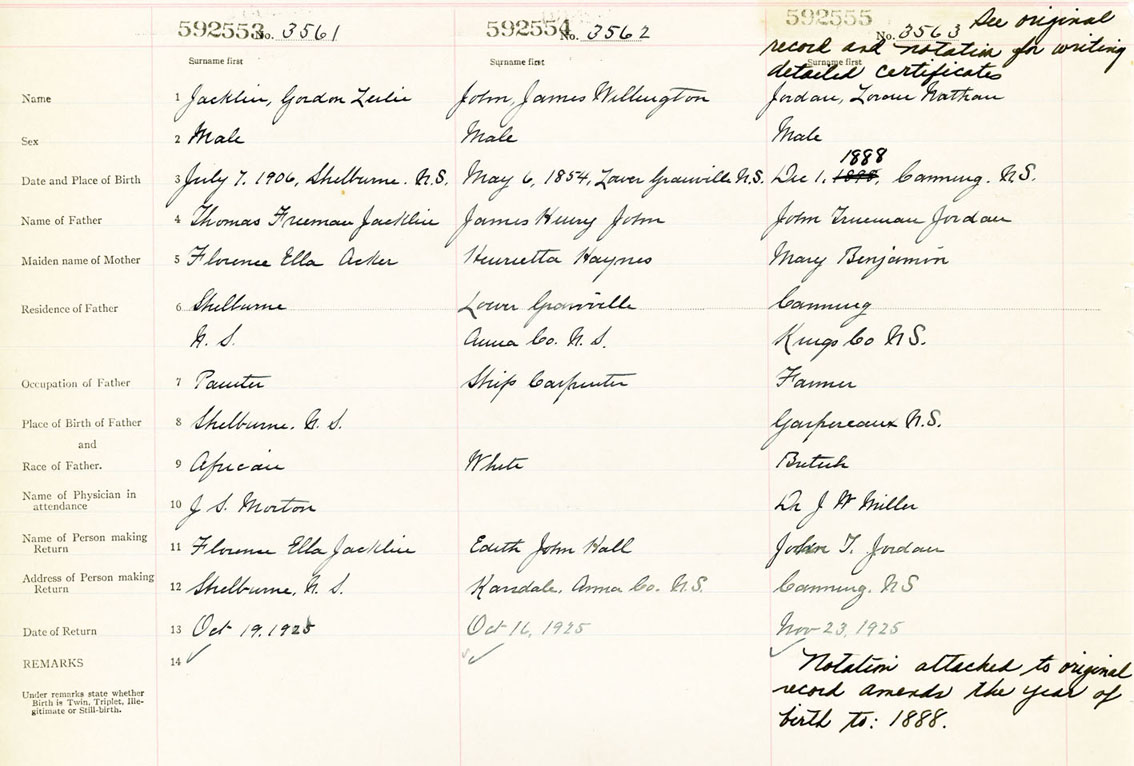 592553 No. 3561 592554 No. 3562 592555 No. 3563 See original
record and notation for writing
Surname first Surname first Surname first
detailed certificates
Name 1 Jacklin, Gordon Leslie John, James Willington Jordan, Loran Nathan
Sex 2 Male Male Male
1888
Date and Place of Birth 3 July 7, 1906, Shelburne. N.S. May 6, 1854, Lower Granville N.S. Dec 1, Canning. N.S.
Name of Father 4 Thomas Freeman Jacklin James Henry John John Trueman Jordan
Maiden name of Mother 5 Florence Ella Acker Henrietta Haynes Mary Benjamin
Residence of Father 6 Shelburne Lower Granville Canning
N. S. Anna Co. N. S. Kings Co N.S.
Occupation of Father 7 Painter Ship Carpenter Farmer
Place of Birth of Father 8 Shelburne. N. S. Gaspereaux N.S.
and
Race of Father. 9 African White British
Name of Physician in
attendance 10 J S. Morton Dr J W Miller
Name of Person making
Return 11 Florence Ella Jacklin Edith John Hall John T. Jordan
Address of Person making
Return 12 Shelburne, N. S. Karsdale, Anna Co. N.S. Canning, NS
Date of Return 13 Oct 19, 1925 Oct 16, 1925 Nov 23, 1925
REMARKS 14 Notation attached to original
Under remarks state whether record amends the year of
Birth is Twin, Triplet, Ille-
gitimate or Still-birth. birth to: 1888.